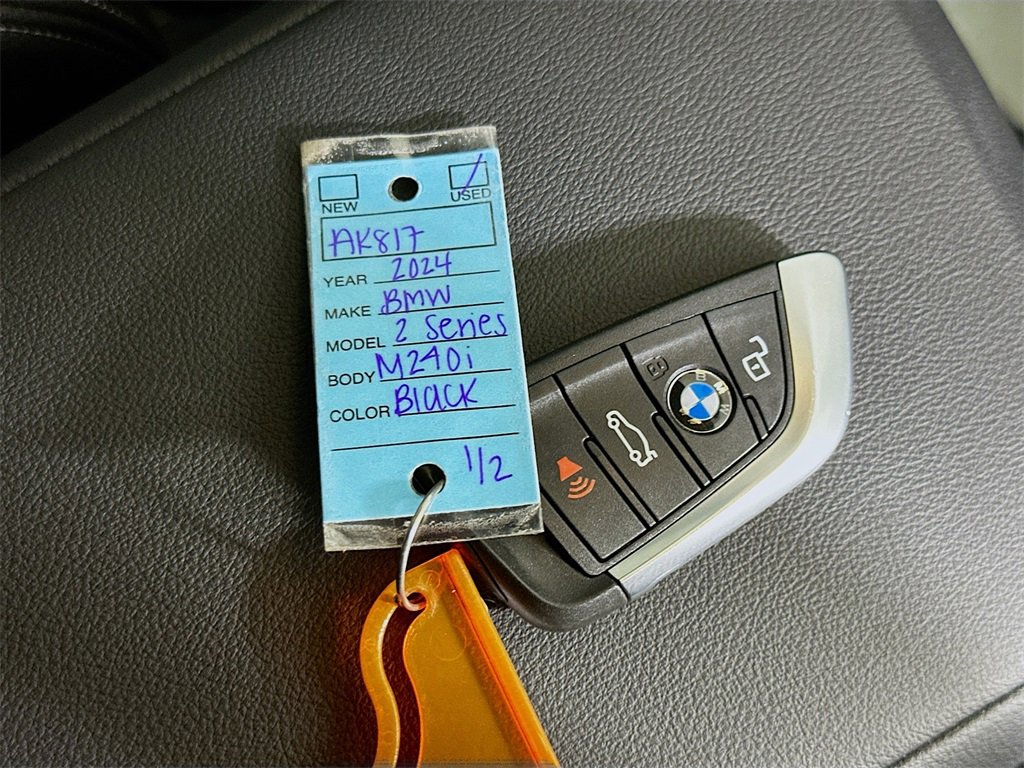 NEW USED
AK817
YEAR 2024
MAKE BMW
MODEL 2 Series
BODY M240i
COLOR Black
1/2
BMW